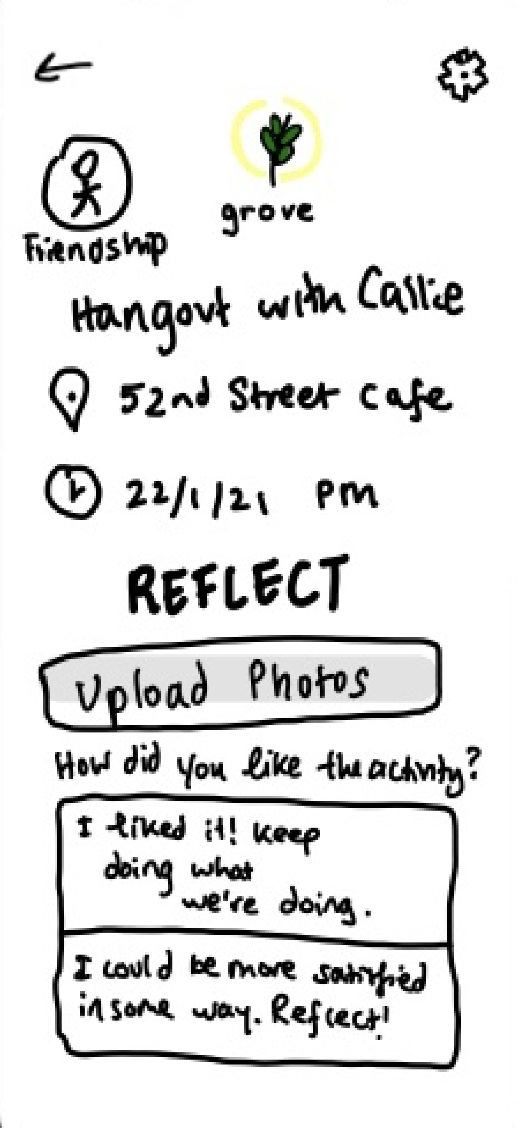 grove
Friendship
Hangout with Callie
52nd Street Cafe
22/1/21 PM
REFLECT
Upload Photos
How did you like the activity?
I liked it! Keep
doing what
we're doing.
I could be more satisfied
in some way. Reflect!